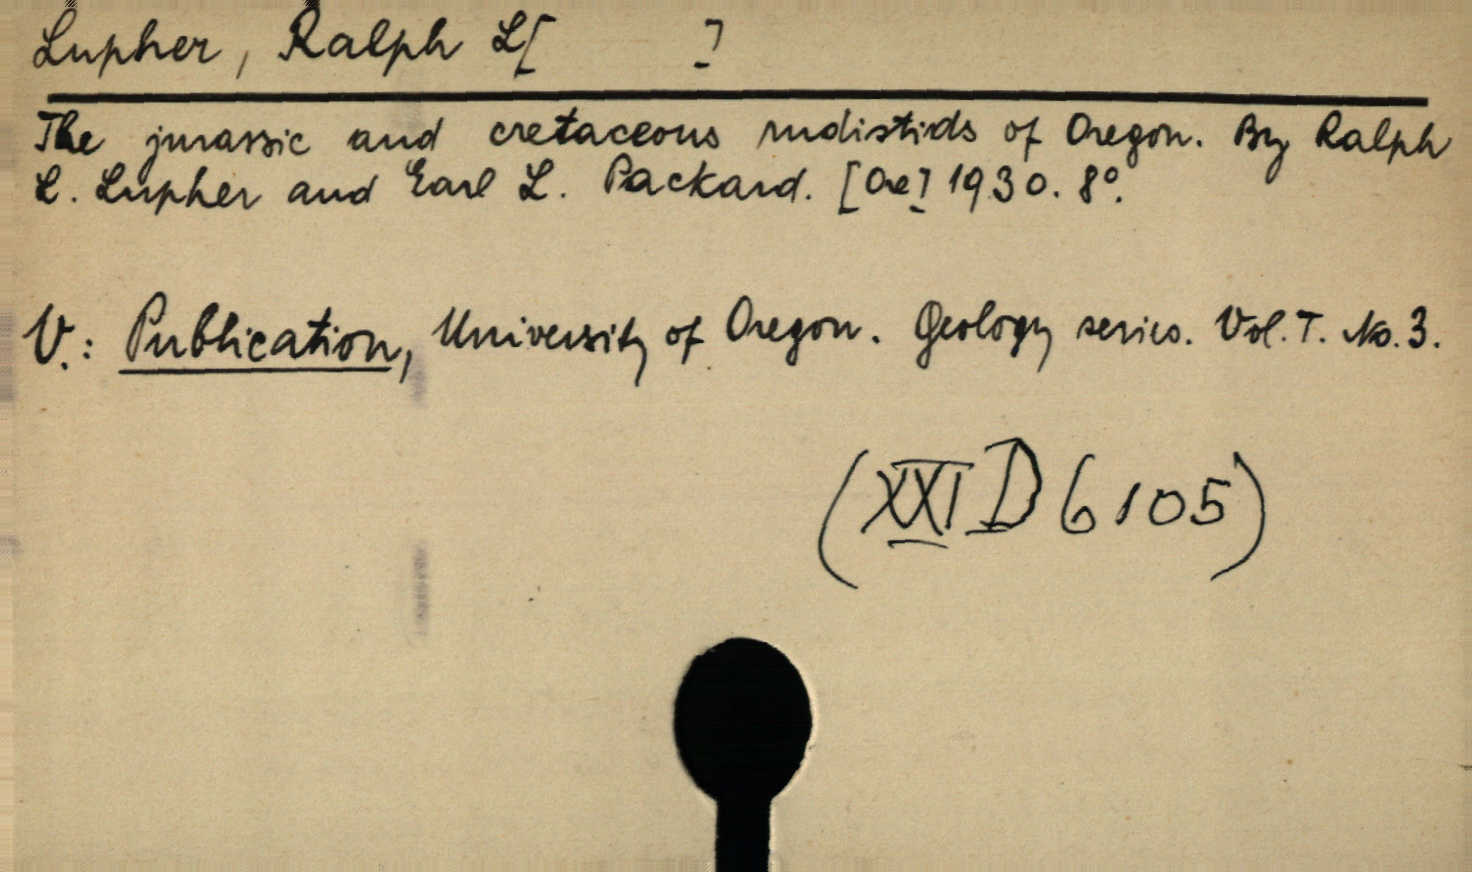 Lupher, Ralph L[ ]
The jurassic and cretaceous rudistids of Oregon. By Ralph
L. Lupher and Earl L. Packard. [Ore] 1930. 8°.
V.: Publication, University of Oregon. Geology series. Vol. I. No. 3.
(XXI D 6105)